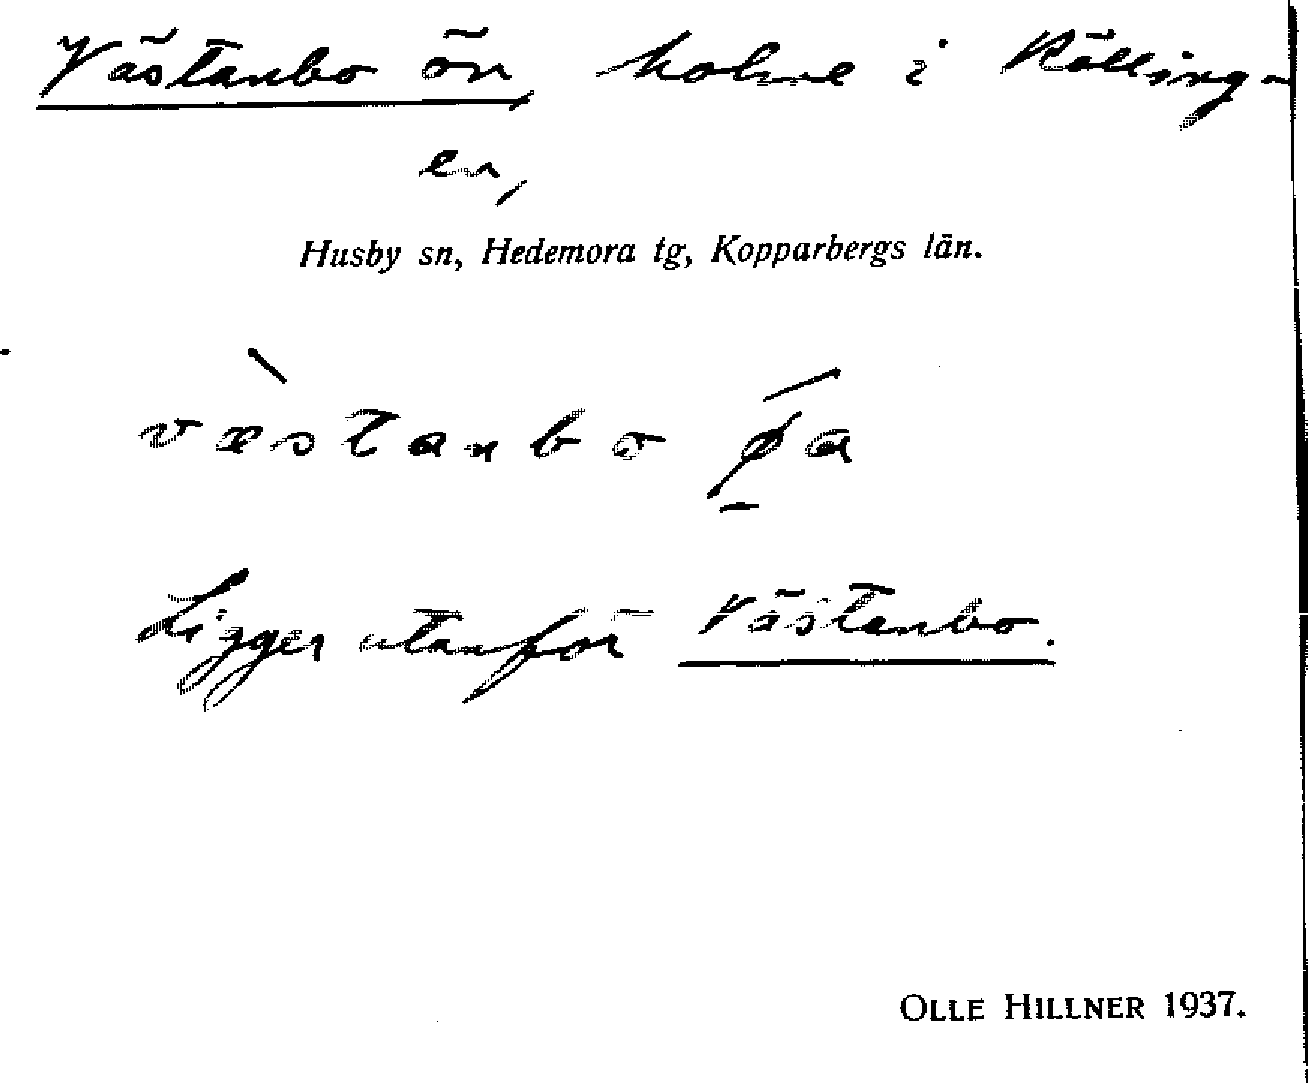 Västanbo ön, holme i Rölling-
en,
Husby sn, Hedemora tg, Kopparbergs län.
væstanbo ø̱a
Ligger utanför Västanbo.
OLLE HILLNER 1937.